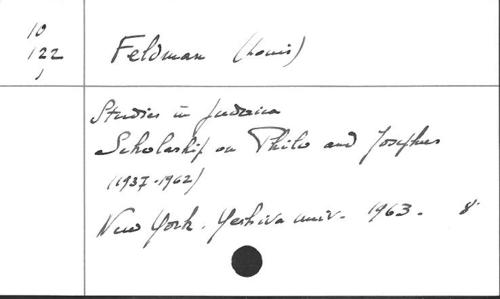 10
122
1
Feldman (Louis)
Studies in Judaica
Scholarship on Philo and Josephus
(1937-1962)
New York. Yeshiva univ. 1963. 8°